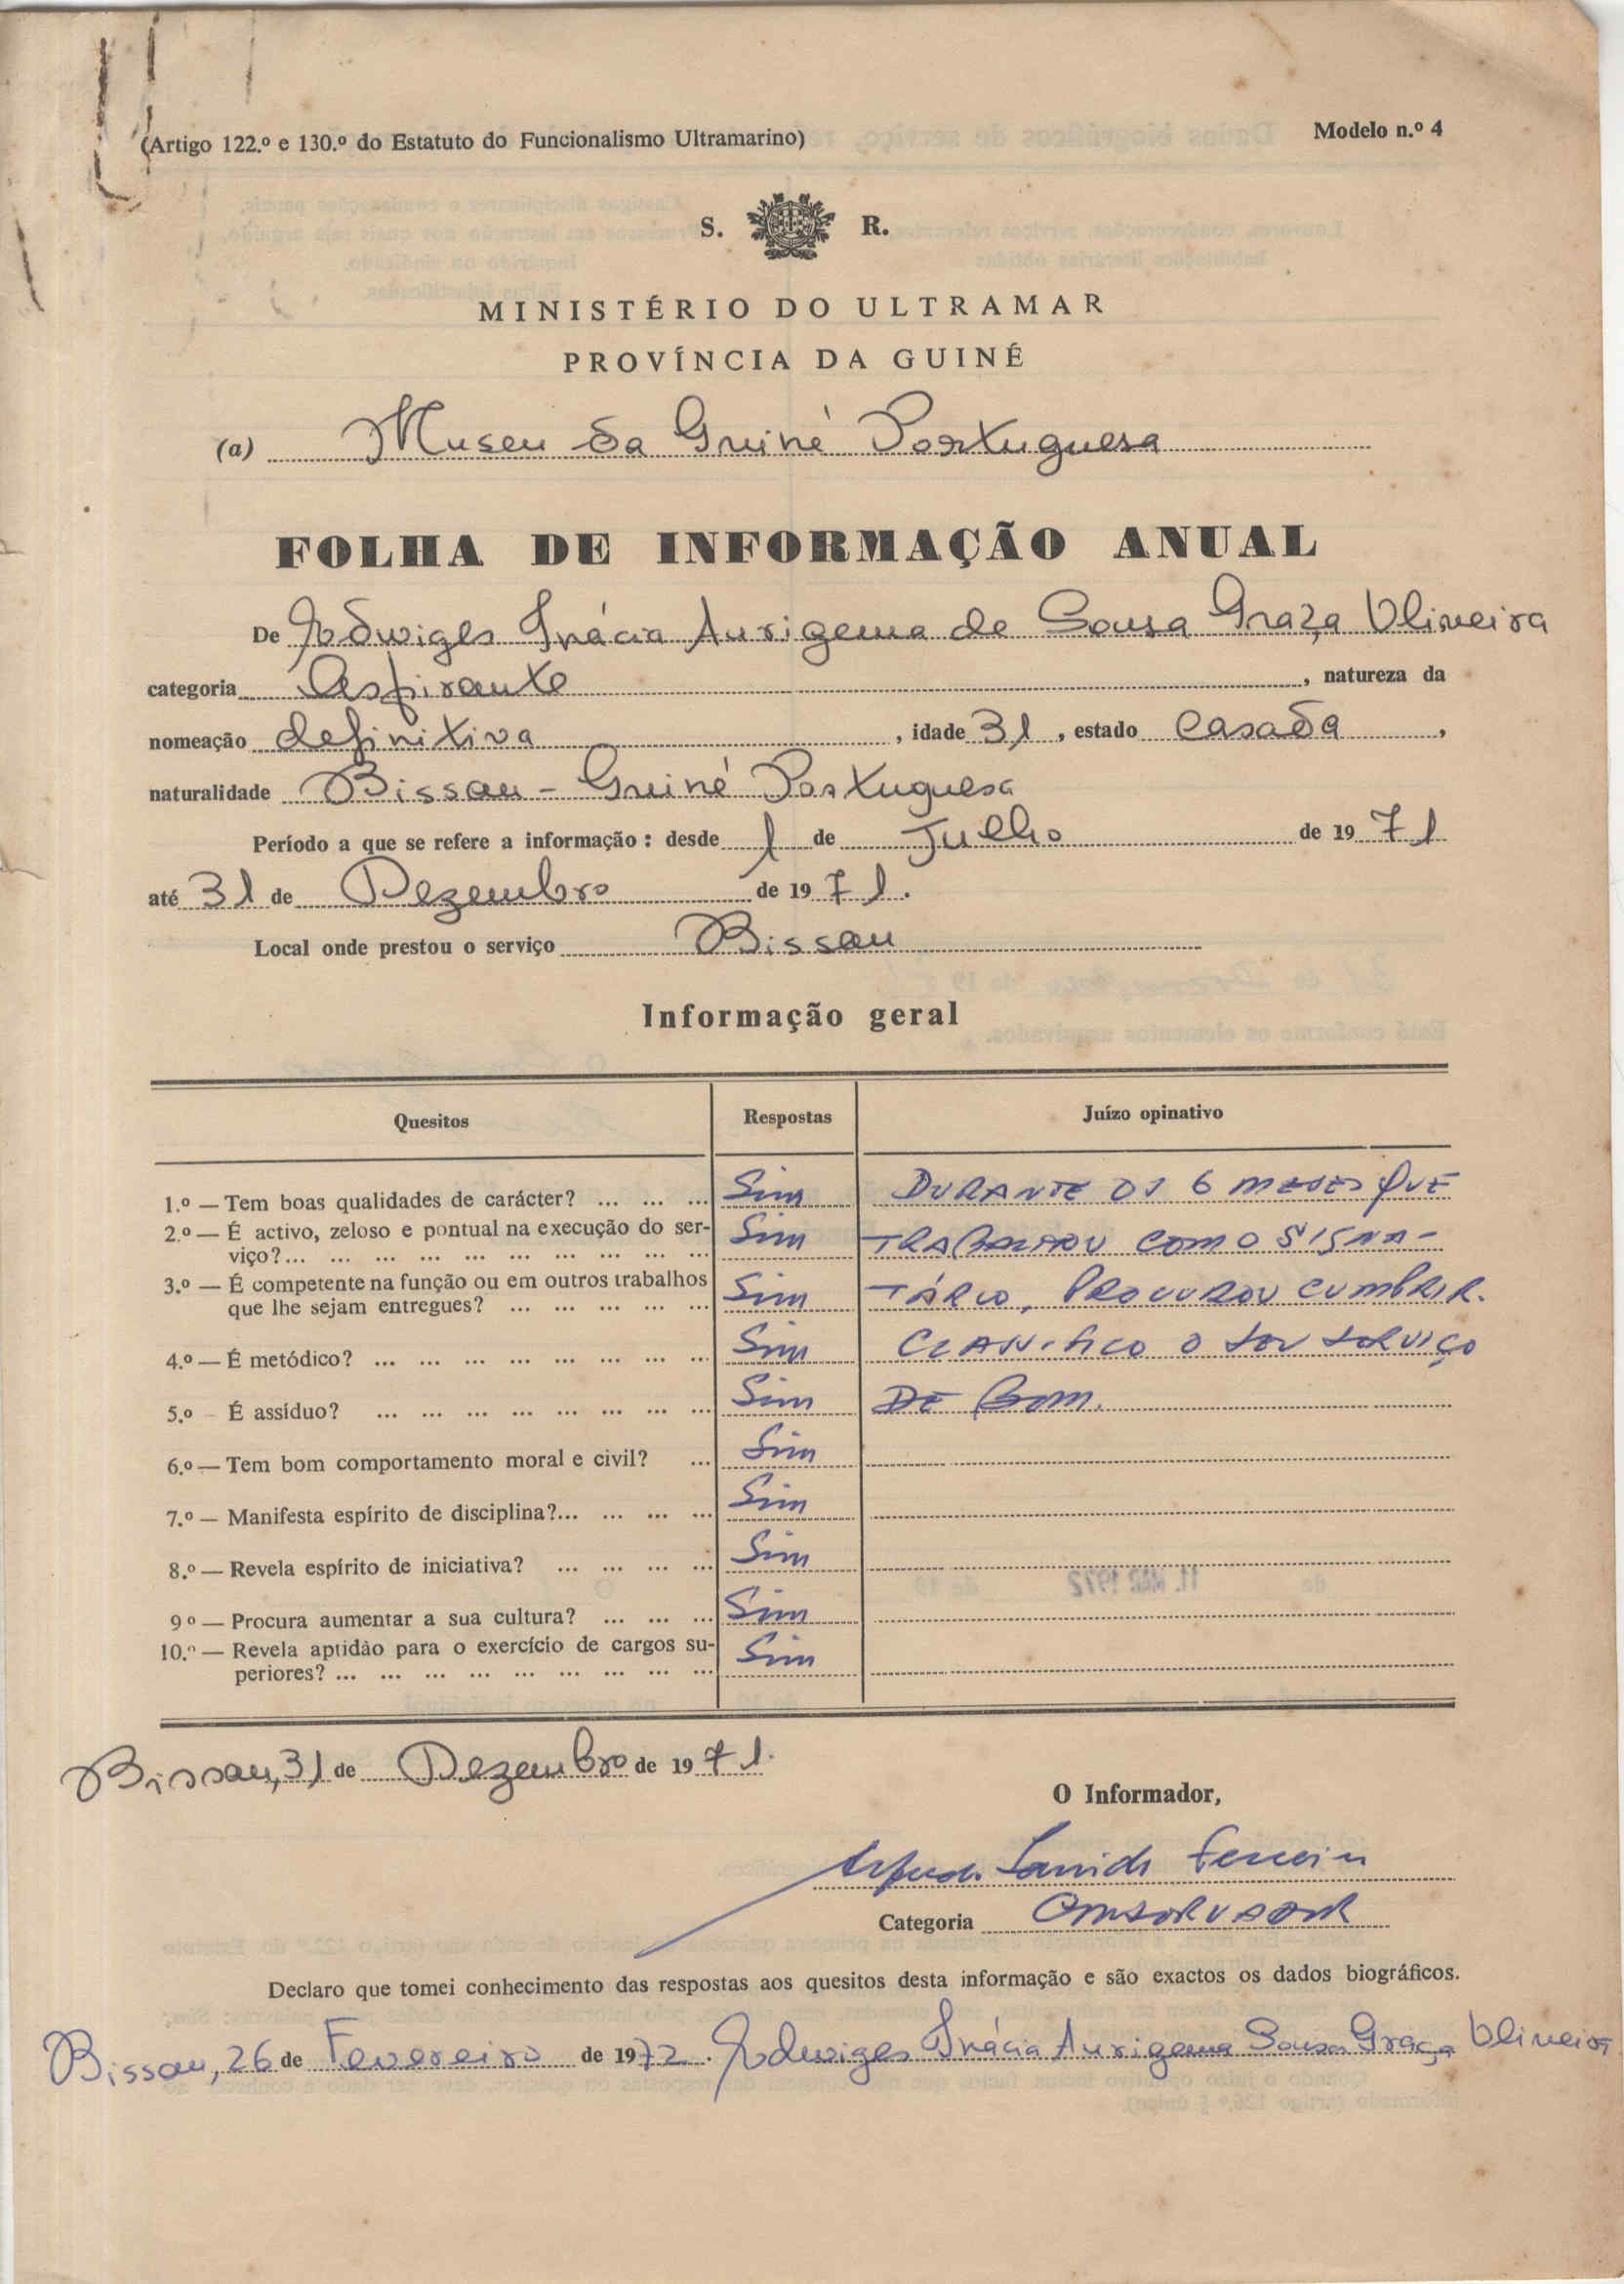 (Artigo 122.º e 130.º do Estatuto do Funcionalismo Ultramarino)
Modelo n.º 4
S. R.
MINISTÉRIO DO ULTRAMAR
PROVÍNCIA DA GUINÉ
(a) Museu da Guiné Portuguesa
FOLHA DE INFORMAÇÃO ANUAL
De Edwiges Inácia Aurigema de Sousa Graça Oliveira
categoria Aspirante, natureza da
nomeação definitiva, idade 31, estado Casada,
naturalidade Bissau - Guiné Portuguesa
Período a que se refere a informação: desde 1 de Julho de 1971
até 31 de Dezembro de 1971.
Local onde prestou o serviço Bissau
Informação geral
Quesitos Respostas Juízo opinativo
1.º — Tem boas qualidades de carácter? ... ... ... Sim DURANTE OS 6 MESES QUE
2.º — É activo, zeloso e pontual na execução do ser-
viço?... ... ... ... ... ... ... ... ... ... Sim TRABALHOU COM O SIGNA-
3.º — É competente na função ou em outros trabalhos
que lhe sejam entregues? ... ... ... ... ... Sim TÁRIO, PROCUROU CUMPRIR.
4.º — É metódico? ... ... ... ... ... ... ... ... Sim CLASSIFICO O SEU SERVIÇO
5.º – É assíduo? ... ... ... ... ... ... ... ... Sim DE BOM.
6.º — Tem bom comportamento moral e civil? ... Sim
7.º — Manifesta espírito de disciplina?... ... ... ... Sim
8.º — Revela espírito de iniciativa? ... ... ... ... Sim
9º — Procura aumentar a sua cultura? ... ... ... Sim
10.º — Revela aptidão para o exercício de cargos su-
periores? ... ... ... ... ... ... ... ... ... Sim
Bissau, 31 de Dezembro de 1971.
O Informador,
Ferreira
Categoria CONSERVADOR
Declaro que tomei conhecimento das respostas aos quesitos desta informação e são exactos os dados biográficos.
Bissau, 26 de Fevereiro de 1972. Edwiges Inácia Aurigema Sousa Graça Oliveira